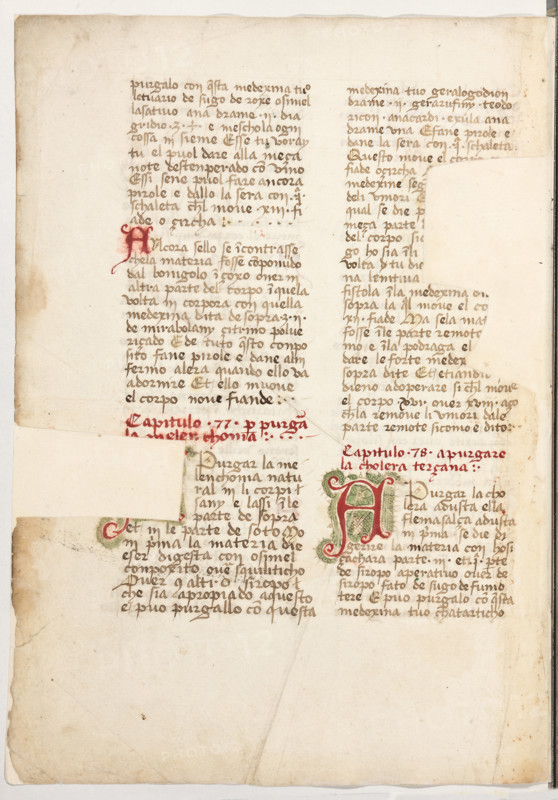 purgalo con q̄sta medexina tuo
letuario de sugo de roxe osimel
lasatiuo ana drame ·ii· dia
gridio ·з· e meschola ogni
cossa in sieme Esse tu voray
tu el puol dare alla meça
note destenperado cō vino
Essi sene puol fare ancora
pirole e dallo la sera con ·q̄·
schaleta chl moue ·xiii· fi
ade o çircha :·
Alcora sello se īcontrasse
che la materia fosse cōponudo
dal bonigolo ī çoxo ouer in
altra parte del corpo ī quela
volta in corpora con quella
medexina dita de sopra ·з·ii·
de mirabolany çitrino polue
riçado E de tuto q̄sto conpo
sito fane pirole e dane alin
fermo alera quando ello va
adormire Et ello muoue
el corpo noue fiande :·
Capitulo ·77· p purgā
la melenchonia :·
Purgar la me
lenchonia natu
ral in li corpi ī
sany e lassi ī le
parte de sopra
et in le parte de soto Mo
in p̄ma la materia die
eser digesta con osimel
conpoxito oue squiliticho
Ouer 9 altri o siropo ł
che sia apropiado aquesto
e puo purgallo cō questa
medexina tuo geralogodion
drame ·ii· gerarufiny teodo
ricon anacardi exula ana
drame vna E fane pirole e
dane la sera con ·q̄· schaleta
Questo moue el
fiade o çircha
medexine
deli umori E
qual se die
meça parte
del corpo
go ho sia ī li
volta y tu die
na lenitiua
fistola ī la medexina
sopra la moue el co
·xii· fiade Ma sela mat
fosse īle parte remote
mo e ī la podraga el
dare le forte medex
sopra dite Et etiandi
dieno adoperare si chl moue
el corpo xvi· ouer xviii· aço
chla remoue li vmori dale
parte remote sicomo e ditor
Capitulo ·78· a purgare
la cholera terçana :·
A Purgar la cho
lera adusta ella
flemasalça adusta
in p̄ma se die di
gerire la materia con hosi
çachara parte ·iii· et ·j· p̄te
de siropo aperatiuo ouer de
siropo fato de sugo de fumo
tere E puo purgalo cō q̄sta
medexina tuo chatarticho